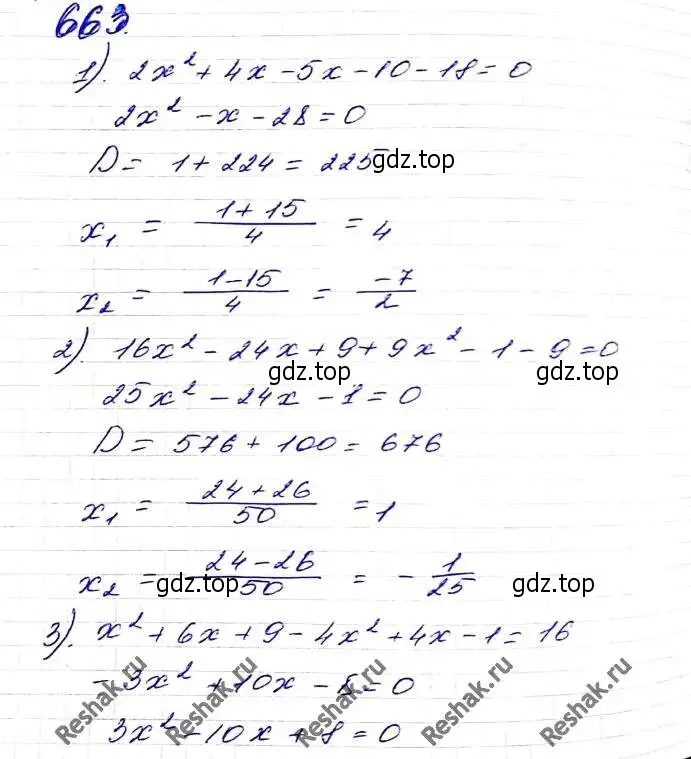 663.
1). 2x² + 4x - 5x - 10 - 18 = 0
2x² - x - 28 = 0
D = 1 + 224 = 225
gdz.top
x₁ = (1 + 15)/4 = 4
x₂ = (1 - 15)/4 = -7/2
2). 16x² - 24x + 9 + 9x² - 1 - 9 = 0
gdz.top gdz.top
25x² - 24x - 1 = 0
D = 576 + 100 = 676
x₁ = (24 + 26)/50 = 1
x₂ = (24 - 26)/50 = - 1/25
gdz.top gdz.top
3). x² + 6x + 9 - 4x² + 4x - 1 = 16
- 3x² + 10x - 8 = 0
3x² - 10x + 8 = 0
Reshak.ru Reshak.ru Reshak.ru Reshak.ru